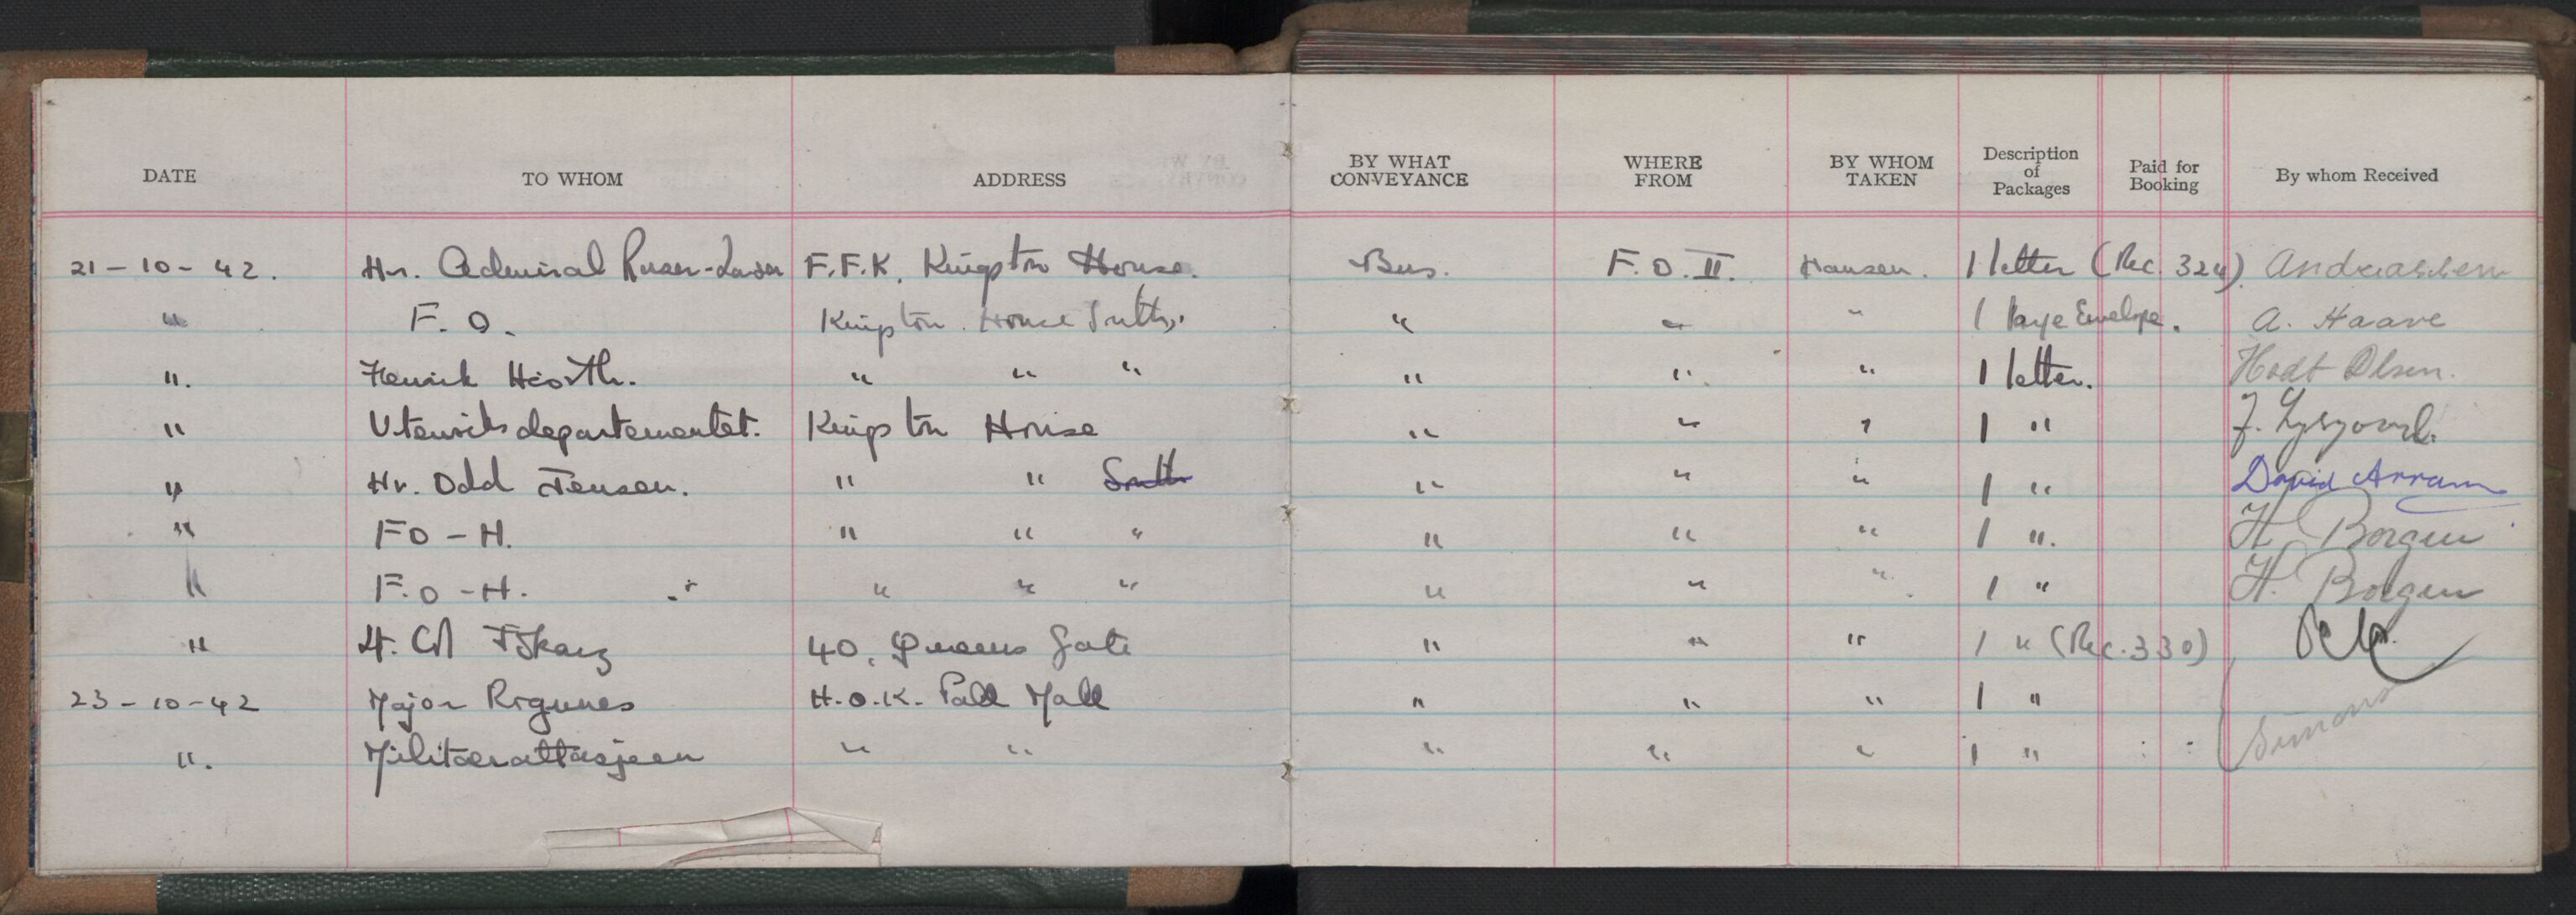 DATE TO WHOM ADDRESS BY WHAT CONVEYANCE WHERE FROM BY WHOM TAKEN Description of Packages Paid for Booking By whom Received
21-10-42. Hr. Admiral F.F.K. Kingston House. Bus. F.O.II. Hansen. 1 letter (Rec. 324). Andreassen
" F.O. Kingston House South, " " " 1 large Envelope. A. Haave
". Henrik Hiorth. " " " " ". " 1 letter. Hodt Olsen.
" Utenriksdepartementet. Kingston House " " " 1 "
" Hr. Odd Jensen. " " South " " " 1 " David Arram
" FO-H. " " " " " " 1 ". H Borgen
" F.O-H. " " " " " ". 1 " H. Borgen
" Lt. Col 40, Queens Gate " " " 1 " (Rec. 330)
23-10-42 Major Rognnes H.O.K. Pall Mall " " " 1 " Simons
". Militærattasjeen " " " " " 1 " : :